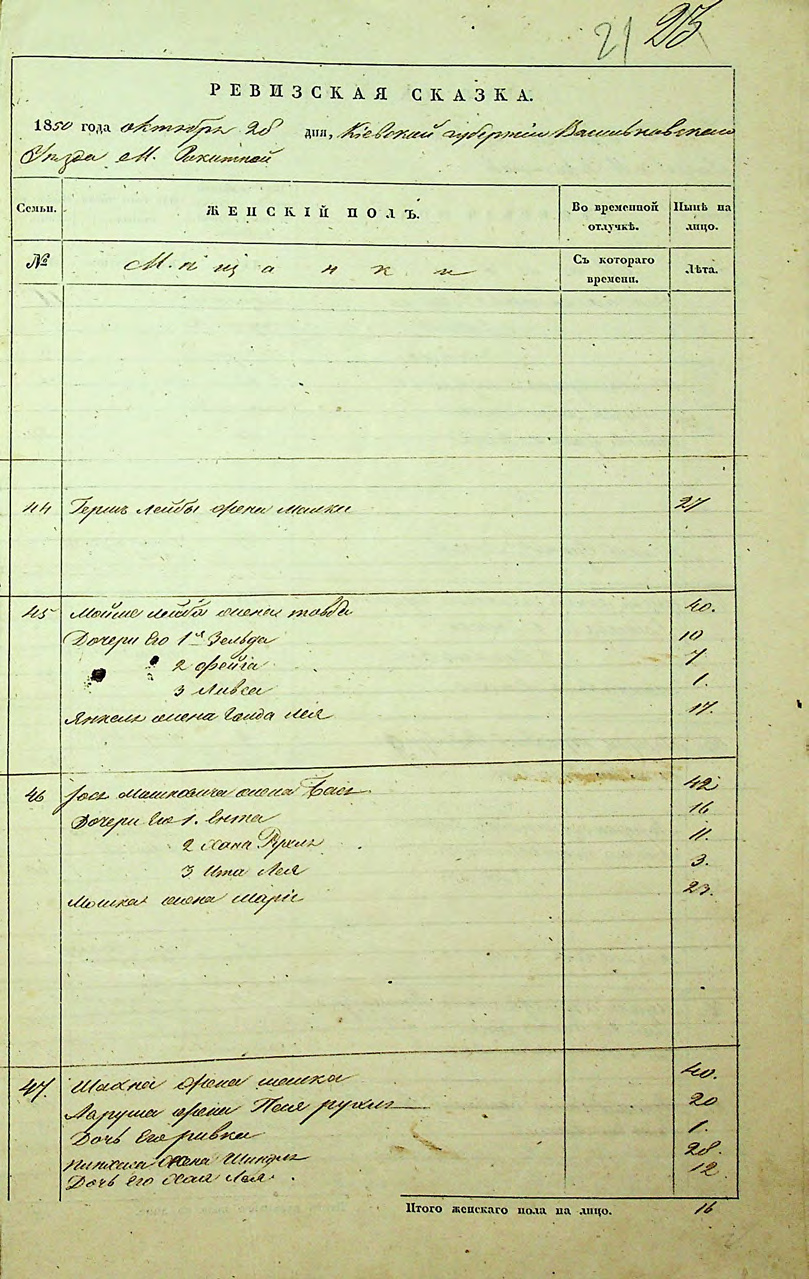 21 23
РЕВИЗСКАЯ СКАЗКА.
1850 года октября 28 дня, Кіевской губерніи Васильковскаго
Уѣзда М. Ракитной
Семьи. ЖЕНСКІЙ ПОЛЪ. Во временной отлучкѣ. Нынѣ на лицо.
№ Мѣщанки Съ котораго времени. Лѣта.
44 Герш Лейбы жена Малки 27
45 Мойше Лейба жена Товба 40.
Дочери Его 1я Зельда 10
2 Фейга 7
3 Ливса 1.
Янкеля жена Голда Лея 17.
46 Іось Мошковича жена Бася 42
Дочери Его 1. Ента 16
2 Хана Рухль 11.
3 Ита Лея 3.
Мошка жена Марія 23.
47. Шахна жена 40.
жена Песя рухль 20
Дочь Его ривка 1.
Пинхаса жена 28.
Дочь Его Хая Лея. 12
Итого женскаго пола на лицо. 16